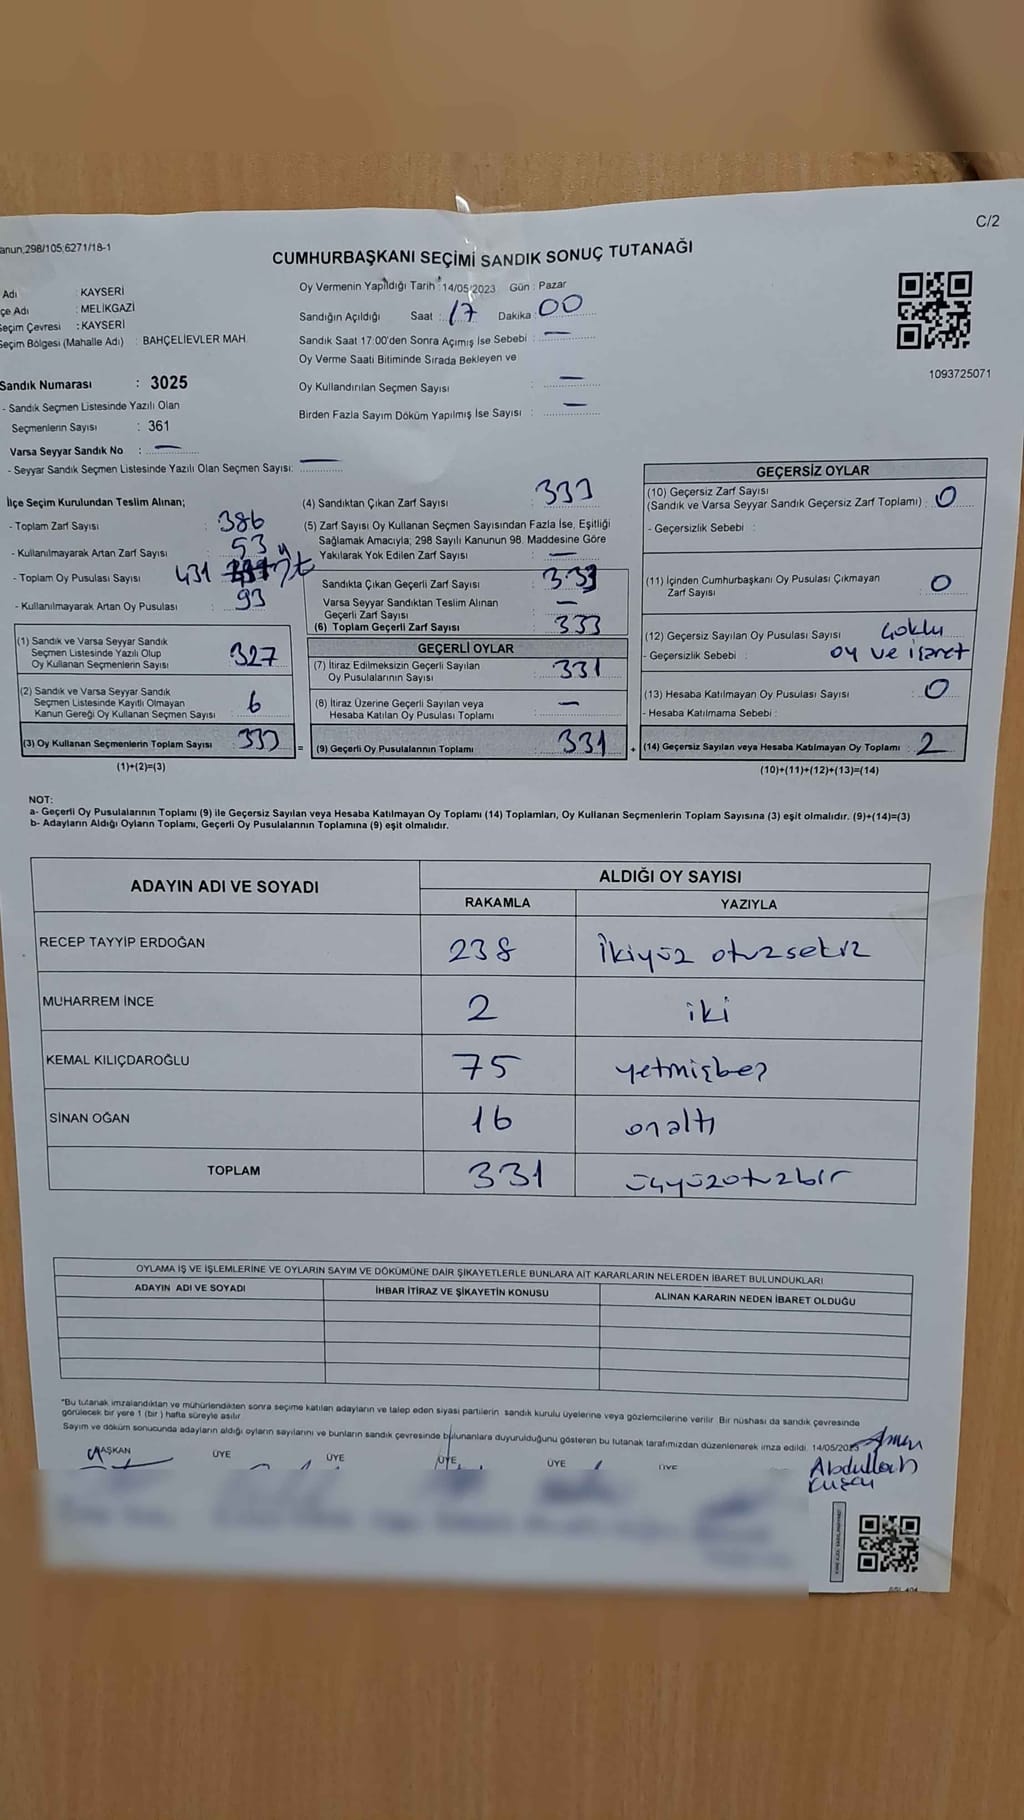 C/2
anun,298/105;6271/18-1
CUMHURBAŞKANI SEÇİMİ SANDIK SONUÇ TUTANAĞI
Adı : KAYSERİ
çe Adı : MELİKGAZİ
Seçim Çevresi : KAYSERİ
Seçim Bölgesi (Mahalle Adı) : BAHÇELİEVLER MAH.
Sandık Numarası : 3025
- Sandık Seçmen Listesinde Yazılı Olan
Seçmenlerin Sayısı : 361
Varsa Seyyar Sandık No : —
- Seyyar Sandık Seçmen Listesinde Yazılı Olan Seçmen Sayısı: —
Oy Vermenin Yapıldığı Tarih : 14/05/2023 Gün : Pazar
Sandığın Açıldığı Saat : 17 Dakika : 00
Sandık Saat 17:00'den Sonra Açımış İse Sebebi : —
Oy Verme Saati Bitiminde Sırada Bekleyen ve
Oy Kullandırılan Seçmen Sayısı : —
Birden Fazla Sayım Döküm Yapılmış İse Sayısı : —
1093725071
İlçe Seçim Kurulundan Teslim Alınan;
- Toplam Zarf Sayısı : 386
- Kullanılmayarak Artan Zarf Sayısı : 53
- Toplam Oy Pusulası Sayısı 431
- Kullanılmayarak Artan Oy Pusulası : 93
(1) Sandık ve Varsa Seyyar Sandık
Seçmen Listesinde Yazılı Olup
Oy Kullanan Seçmenlerin Sayısı : 327
(2) Sandık ve Varsa Seyyar Sandık
Seçmen Listesinde Kayıtlı Olmayan
Kanun Gereği Oy Kullanan Seçmen Sayısı : 6
(3) Oy Kullanan Seçmenlerin Toplam Sayısı : 333
(1)+(2)=(3)
(4) Sandıktan Çıkan Zarf Sayısı : 333
(5) Zarf Sayısı Oy Kullanan Seçmen Sayısından Fazla İse, Eşitliği
Sağlamak Amacıyla; 298 Sayılı Kanunun 98. Maddesine Göre
Yakılarak Yok Edilen Zarf Sayısı : —
Sandıkta Çıkan Geçerli Zarf Sayısı : 333
Varsa Seyyar Sandıktan Teslim Alınan
Geçerli Zarf Sayısı : —
(6) Toplam Geçerli Zarf Sayısı : 333
GEÇERLİ OYLAR
(7) İtiraz Edilmeksizin Geçerli Sayılan
Oy Pusulalarının Sayısı : 331
(8) İtiraz Üzerine Geçerli Sayılan veya
Hesaba Katılan Oy Pusulası Toplamı : —
= (9) Geçerli Oy Pusulalarının Toplamı : 331
GEÇERSİZ OYLAR
(10) Geçersiz Zarf Sayısı
(Sandık ve Varsa Seyyar Sandık Geçersiz Zarf Toplamı) : 0
- Geçersizlik Sebebi :
(11) İçinden Cumhurbaşkanı Oy Pusulası Çıkmayan
Zarf Sayısı : 0
(12) Geçersiz Sayılan Oy Pusulası Sayısı : Çoklu
- Geçersizlik Sebebi : oy ve işaret
(13) Hesaba Katılmayan Oy Pusulası Sayısı : 0
- Hesaba Katılmama Sebebi :
+ (14) Geçersiz Sayılan veya Hesaba Katılmayan Oy Toplamı : 2
(10)+(11)+(12)+(13)=(14)
NOT:
a- Geçerli Oy Pusulalarının Toplamı (9) ile Geçersiz Sayılan veya Hesaba Katılmayan Oy Toplamı (14) Toplamları, Oy Kullanan Seçmenlerin Toplam Sayısına (3) eşit olmalıdır. (9)+(14)=(3)
b- Adayların Aldığı Oyların Toplamı, Geçerli Oy Pusulalarının Toplamına (9) eşit olmalıdır.
ADAYIN ADI VE SOYADI ALDIĞI OY SAYISI
RAKAMLA YAZIYLA
RECEP TAYYİP ERDOĞAN 238 ikiyüz otuzsekiz
MUHARREM İNCE 2 iki
KEMAL KILIÇDAROĞLU 75 yetmişbeş
SİNAN OĞAN 16 onaltı
TOPLAM 331 üçyüzotuzbir
OYLAMA İŞ VE İŞLEMLERİNE VE OYLARIN SAYIM VE DÖKÜMÜNE DAİR ŞİKAYETLERLE BUNLARA AİT KARARLARIN NELERDEN İBARET BULUNDUKLARI
ADAYIN ADI VE SOYADI İHBAR İTİRAZ VE ŞİKAYETİN KONUSU ALINAN KARARIN NEDEN İBARET OLDUĞU
*Bu tutanak imzalandıktan ve mühürlendikten sonra seçime katılan adayların ve talep eden siyasi partilerin sandık kurulu üyelerine veya gözlemcilerine verilir. Bir nüshası da sandık çevresinde
görülecek bir yere 1 (bir ) hafta süreyle asılır.
Sayım ve döküm sonucunda adayların aldığı oyların sayılarını ve bunların sandık çevresinde bulunanlara duyurulduğunu gösteren bu tutanak tarafımızdan düzenlenerek imza edildi. 14/05/2023
BAŞKAN ÜYE ÜYE ÜYE ÜYE ÜYE
Abdullah